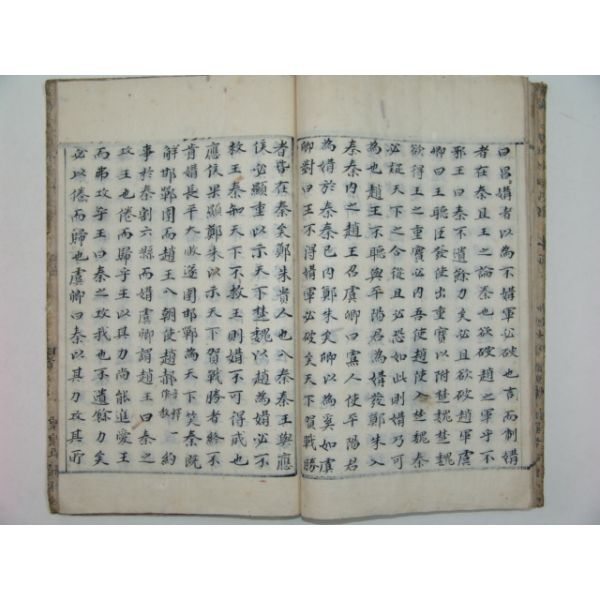 曰昌媾者以為不媾軍必破也言而制媾
者在秦且王之論秦也欲破趙之軍乎不
邪王曰秦不遺餘力矣必且欲破趙軍虞
卿曰王聽臣發使出重寶以附楚魏楚魏
欲得王之重寶必內吾使趙使入楚魏秦
必疑天下之合從且必恐如此則媾乃可
為也趙王不聽與平陽君為媾發鄭朱入
秦秦內之趙王召虞卿曰寡人使平陽君
為媾於秦秦已內鄭朱矣卿以為奚如虞
卿對曰王不得媾軍必破矣天下賀戰勝
者皆在秦矣鄭朱貴人也入秦秦王與應
侯必顯重以示天下楚魏以趙為媾必不
救王秦知天下不救王則媾不可得成也
應侯果顯鄭朱以示天下賀戰勝者終不
肯媾長平大敗遂圍邯鄲為天下笑秦既
解邯鄲圍而趙王入朝使趙郝音釋一作約
事於秦割六縣而媾虞卿謂趙王曰秦之
攻王也倦而歸乎王以其力尚能進愛王
而弗攻乎王曰秦之攻我也不遺餘力矣
必以倦而歸也虞卿曰秦以其力攻其所